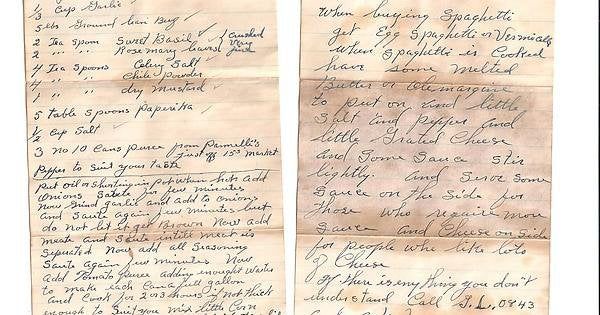 1/3 Cup Garlic
5 lbs Ground lean Beef
2 Tea Spoon Sweet Basil
2 " " Rosemary leaves
Crushed
Very
fine
4 Tea Spoons Celery Salt
4 " " Chile Powder
1 " " dry Mustard
5 table Spoons Paperika
1/2 Cup Salt
3 No 10 Cans puree from
just off 15th Market
Pepper to Suit your taste
put oil or Shortning in pot When hot Add
Onions Saute few minutes
Now grind garlic and add to Onions
And Saute again few minutes but
do not let it get Brown Now add
meate and Saute intill meat is
Seperated Now add all Seasoning
Saute again few minutes Now
Add Tomato Puree adding enought Water
to make each Can a full gallon
And Cook for 2 or 3 hours if Not thick
enough to Suit you Mix little Corn
When buying Spaghetti
get Egg Spaghetti or Vermicelly
When Spaghetti is Cooked
have some melted
Butter or Oleomargine
to put on and little
Salt and pepper and
little Grated Cheese
and Some Sauce Stir
lightly and Serve Some
Sauce on the Side for
those who require more
Sauce and Cheese on Side
for people who like lots
of Cheese
If there is anything you don't
understand Call G.L. 0843